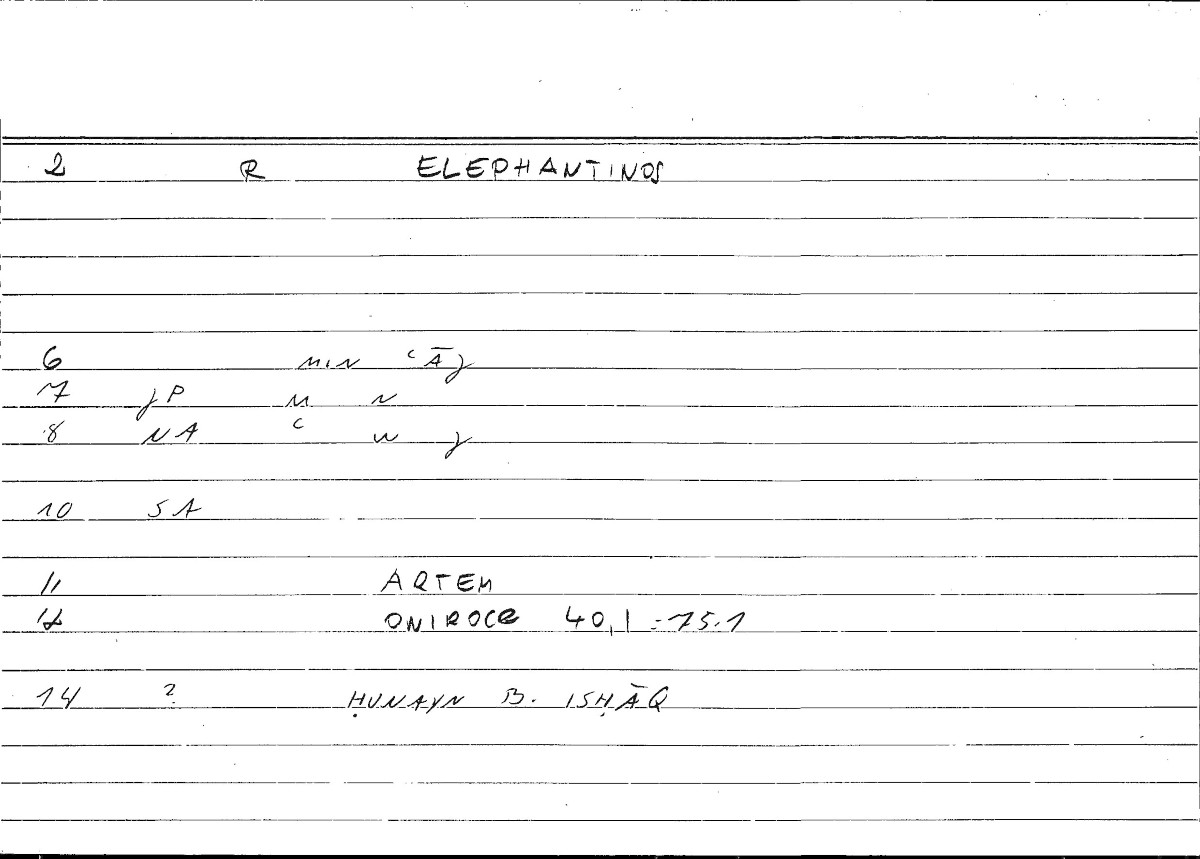 2 R ELEPHANTINOS
6 MIN ʿĀJ
7 JP M N
8 NA ʿ W J
10 SA
11 ARTEM
12 ONIROCR 40,1 = 75.1
14 ? ḤUNAYN B. ISḤĀQ